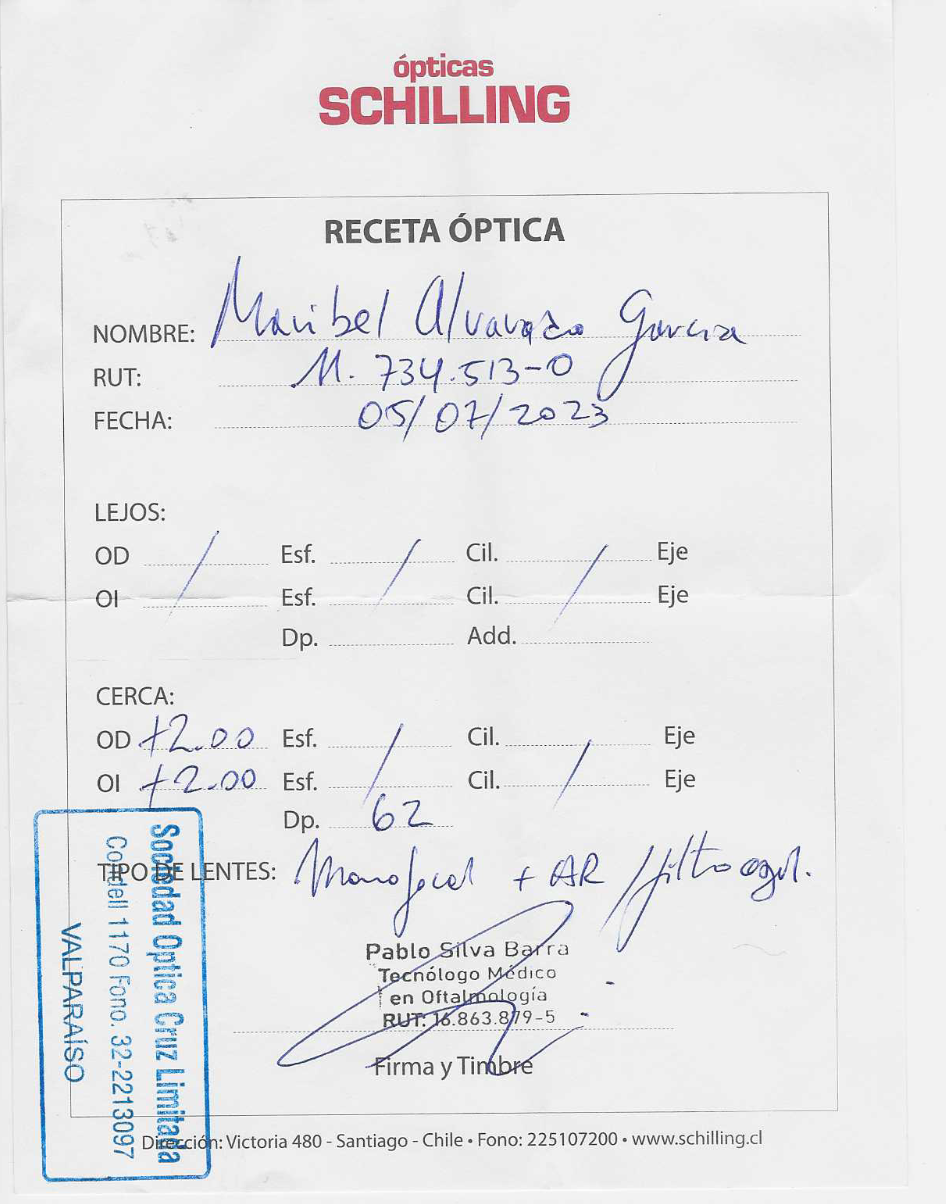 ópticas
SCHILLING
RECETA ÓPTICA
NOMBRE: Maribel Alvarado Garcia
RUT: 11.734.513-0
FECHA: 05/07/2023
LEJOS:
OD / Esf. / Cil. / Eje
OI Esf. Cil. Eje
Dp. Add.
CERCA:
OD +2.00 Esf. / Cil. / Eje
OI +2.00 Esf. Cil. Eje
Dp. 62
TIPO DE LENTES: Monofocal + AR / filtro azul.
Pablo Silva Barra
Tecnólogo Médico
en Oftalmología
RUT: 16.863.879-5
Firma y Timbre
Sociedad Optica Cruz Limitada
Condell 1170 Fono. 32-2213097
VALPARAÍSO
Dirección: Victoria 480 - Santiago - Chile • Fono: 225107200 • www.schilling.cl